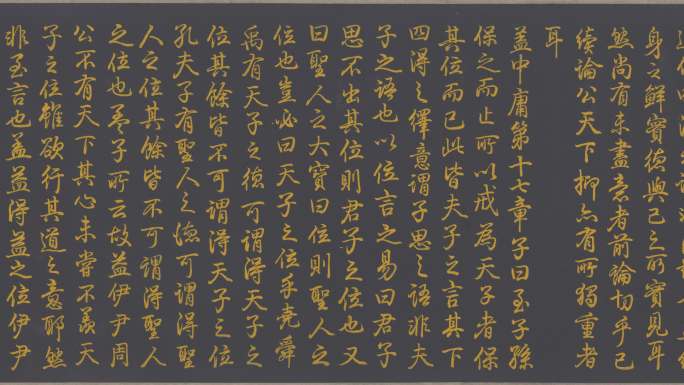 身之鮮實德與己之所實見耳
然尚有未盡意者前論切乎己
續論公天下抑亦有所獨重者
耳
蓋中庸第十七章子曰至子孫
保之而止所以戒為天子者保
其位而已此皆夫子之言其下
四得之繹意謂子思之語非夫
子之語也以位言之易曰君子
思不出其位則君子之位也又
曰聖人之大寶曰位則聖人之
位也豈必曰天子之位乎堯舜
禹有天子之德可謂得天子之
位其餘皆不可謂得天子之位
孔夫子有聖人之德可謂得聖
人之位其餘皆不可謂得聖人
之位也孟子所云故益伊尹周
公不有天下其心未嘗不羨天
子之位雖欲行其道之意耶然
非至言也蓋益得益之位伊尹